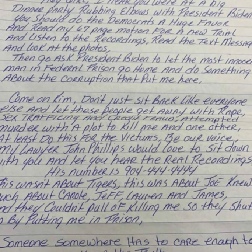 They think you were at a Big
Dinner party Rubbing Elbows with President
you should do the Democrats a Huge Favor
And Read my 67 page motion For A New Trial
And Listen to the Recordings, Read the Text Message
and look at the photos.
Then go Ask President Biden to let the most innocen
man in Federal Prison go Home and do Something
About the Corruption that Put me here.
Come on Kim, Don't just sit Back like everyone
else and let these people get away with Rape,
Sex Trafficking and Child
murder with A plot to Kill me and one other.
At least Do this For the Victims, Be our voice.
My Lawyer John Phillips would love to sit down
with you and let you hear the Real Recordings
His number is 904-444-4444
This wasn't about Tigers, this was about Joe Knew
much About Carole, Jeff Lauren and James,
and they Couldn't pull of Killing me so they Shut
up By Putting me in Prison.
Someone Somewhere Has to care enough t